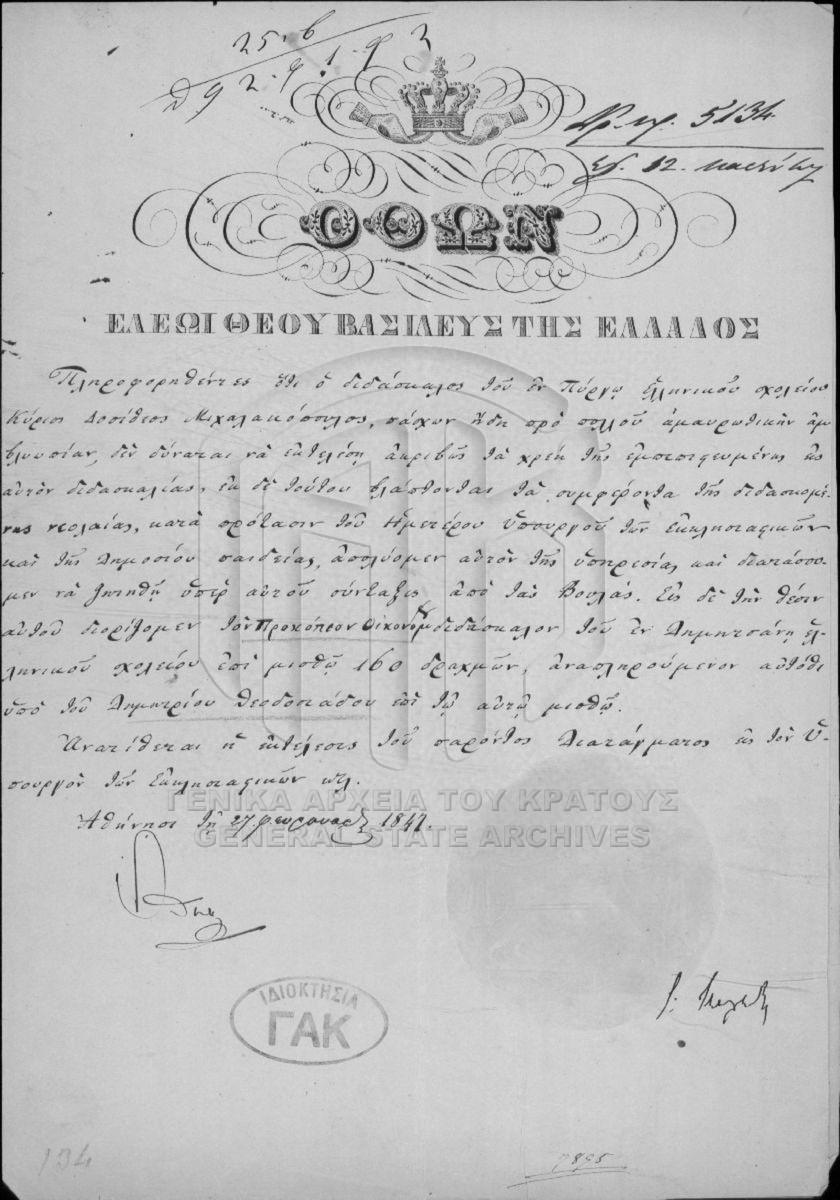 25. β
Αρ. πρ. 5134
ΟΘΩΝ
ΕΛΕΩΙ ΘΕΟΥ ΒΑΣΙΛΕΥΣ ΤΗΣ ΕΛΛΑΔΟΣ
Πληροφορηθέντες ὅτι ὁ διδάσκαλος τοῦ ἐν Πύργῳ ἑλληνικοῦ σχολείου
Κύριος Δοσίθεος Μιχαλακόπουλος, πάσχων ἤδη πρὸ πολλοῦ ἀμαυρωτικὴν ἀμ
βλυωπίαν, δὲν δύναται νὰ ἐκτελέσῃ ἀκριβῶς τὰ χρέη τῆς ἐμπεπιστευμένης εἰς
αὐτὸν διδασκαλίας, ἐκ δὲ τούτου βλάπτονται τὰ συμφέροντα τῆς διδασκομέ
νης νεολαίας, κατὰ πρότασιν τοῦ Ἡμετέρου Ὑπουργοῦ τῶν Ἐκκλησιαστικῶν
καὶ τῆς Δημοσίου παιδείας, ἀπολύομεν αὐτὸν τῆς ὑπηρεσίας καὶ διατάσσο
μεν νὰ ζητηθῇ ὑπὲρ αὐτοῦ σύνταξις ἀπὸ τὰς Βουλάς. Εἰς δὲ τὴν θέσιν
αὐτοῦ διορίζομεν τὸν Προκόπιον Οἰκονόμου διδάσκαλον τοῦ ἐν Δημητσάνῃ ἑλ
ληνικοῦ σχολείου ἐπὶ μισθῷ 160 δραχμῶν, ἀναπληρούμενον αὐτόθι
ὑπὸ τοῦ Δημητρίου Θεοδοσιάδου ἐπὶ τῷ αὐτῷ μισθῷ.
Ἀνατίθεται ἡ ἐκτέλεσις τοῦ παρόντος Διατάγματος εἰς τὸν Ὑ
πουργὸν τῶν Ἐκκλησιαστικῶν κτλ.
ΓΕΝΙΚΑ ΑΡΧΕΙΑ ΤΟΥ ΚΡΑΤΟΥΣ
Ἀθήνησι τῇ 27 φεβρουαρ. 1847.
GENERAL STATE ARCHIVES
ΙΔΙΟΚΤΗΣΙΑ
ΓΑΚ
134